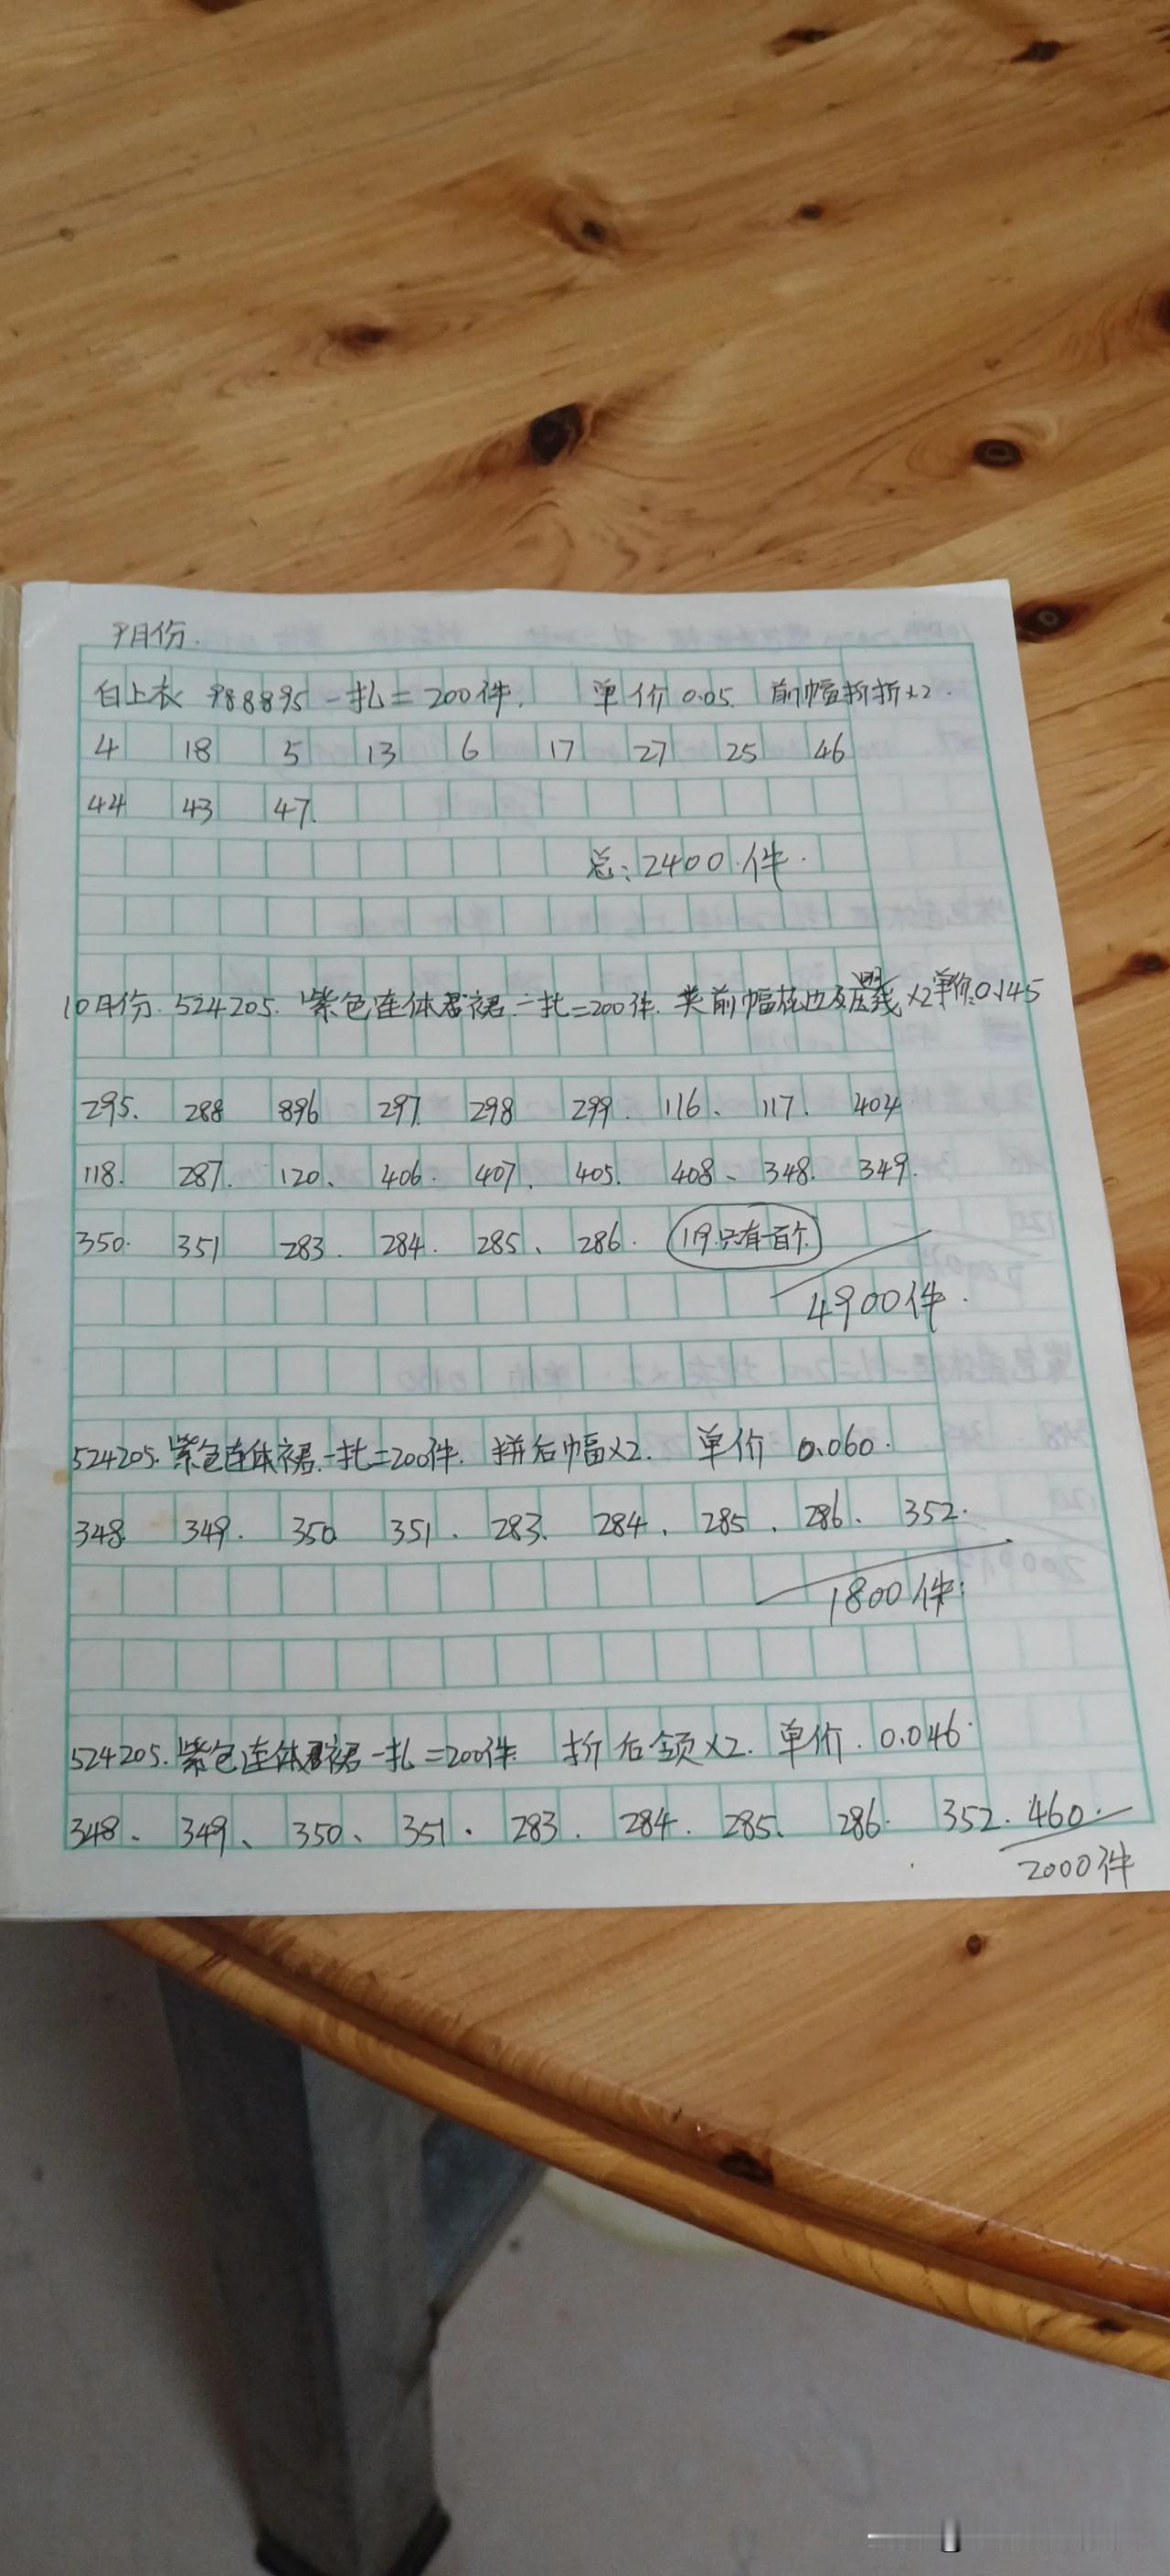 9月份.
白上衣 988895 一扎=200件. 单价 0.05 前幅折折×2.
4 18 5 13 6 17 27 25 46
44 43 47.
总:2400件.
10月份. 524205. 紫色连体裙 一扎=200件. 前幅 ×2 单价:0.145
295. 288 896 297. 298 299. 116. 117. 404
118. 287. 120. 406. 407. 405. 408. 348. 349.
350. 351 283. 284. 285. 286. 119.只有一百个.
4900件.
524205. 紫色连体裙.一扎=200件. 拼后幅×2. 单价 0.060.
348. 349. 350 351. 283. 284. 285. 286. 352.
1800件.
524205. 紫色连体裙 一扎=200件. 折后领×2. 单价. 0.046.
348、 349、 350、 351. 283. 284. 285. 286. 352. 460.
2000件